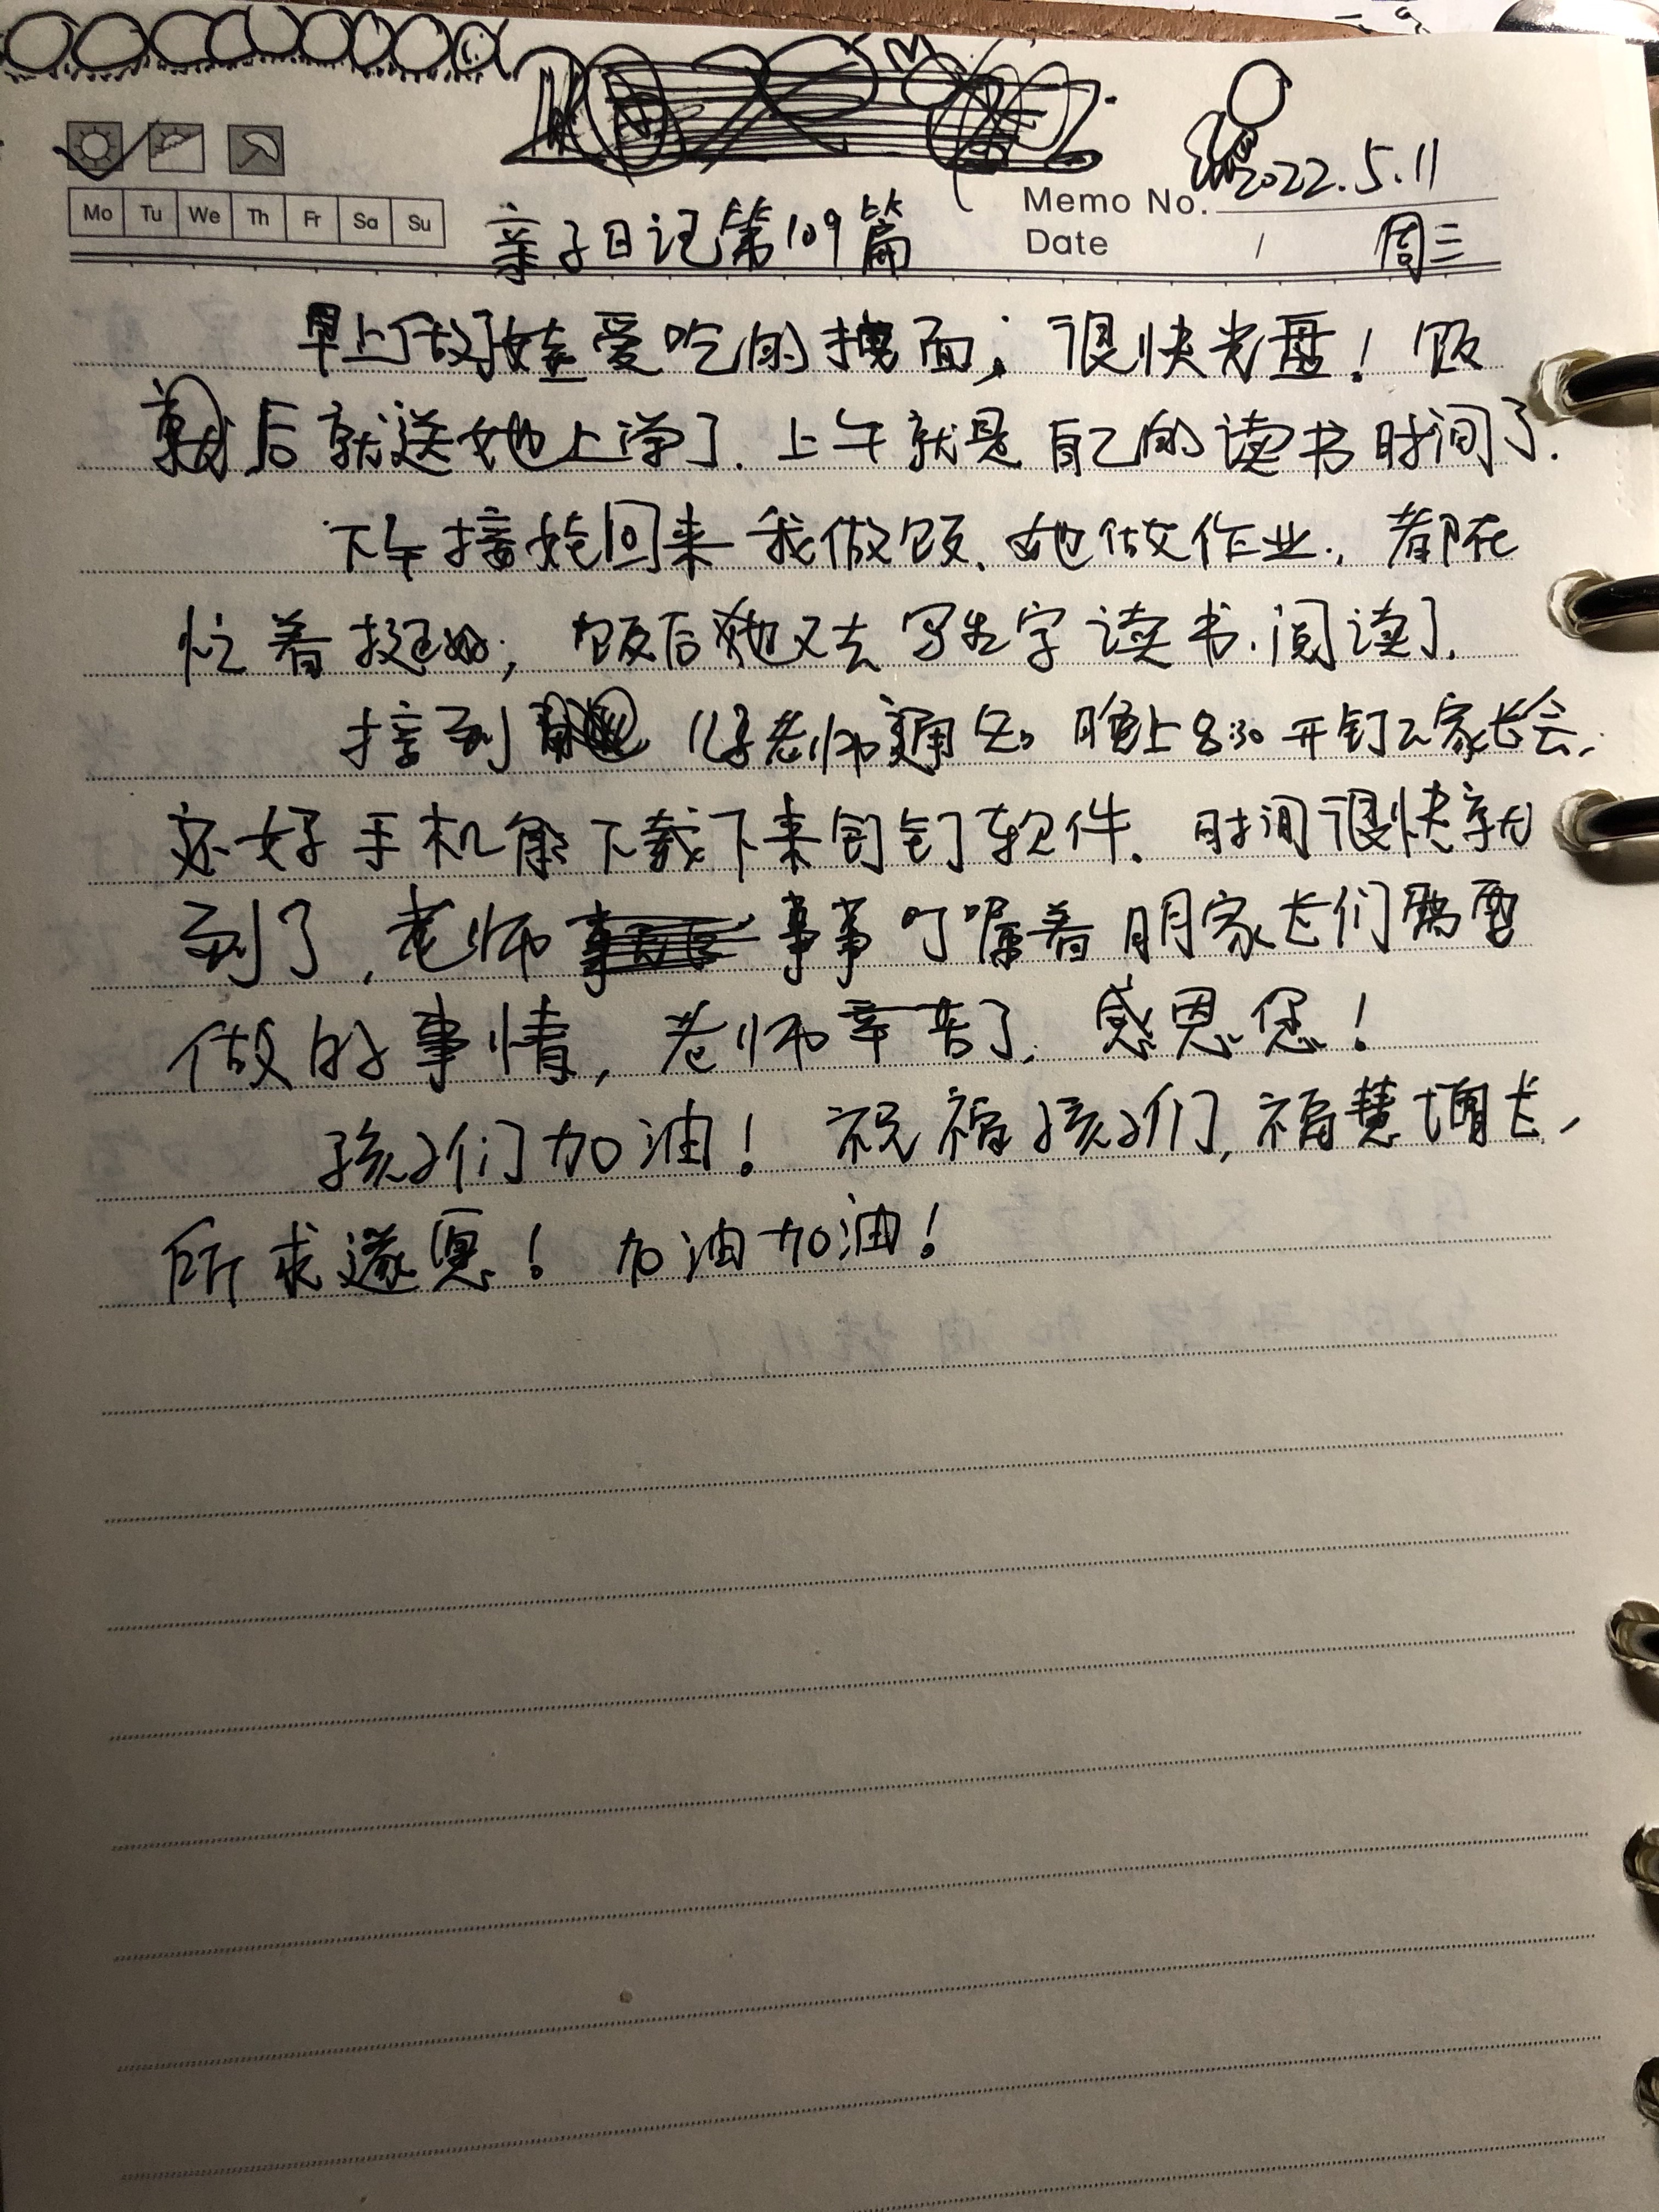 2022.5.11
Mo Tu We Th Fr Sa Su
亲子日记第109篇
Memo No.
Date / 周三
早上做好娃爱吃的拽面，很快光盘！饭
后就送她上学了.上午就是自己的读书时间了.
下午接娃回来我做饭、她做作业.，都在
忙着挺好，饭后她又去写生字读书.阅读了.
接到儿子老师通知晚上8:30开钉钉家长会，
还好手机能下载下来钉钉软件.时间很快就
到了，老师事事叮嘱着明家长们需要
做的事情，老师辛苦了.感恩您！
孩子们加油！祝福孩子们，福慧增长，
所求遂愿！加油加油！